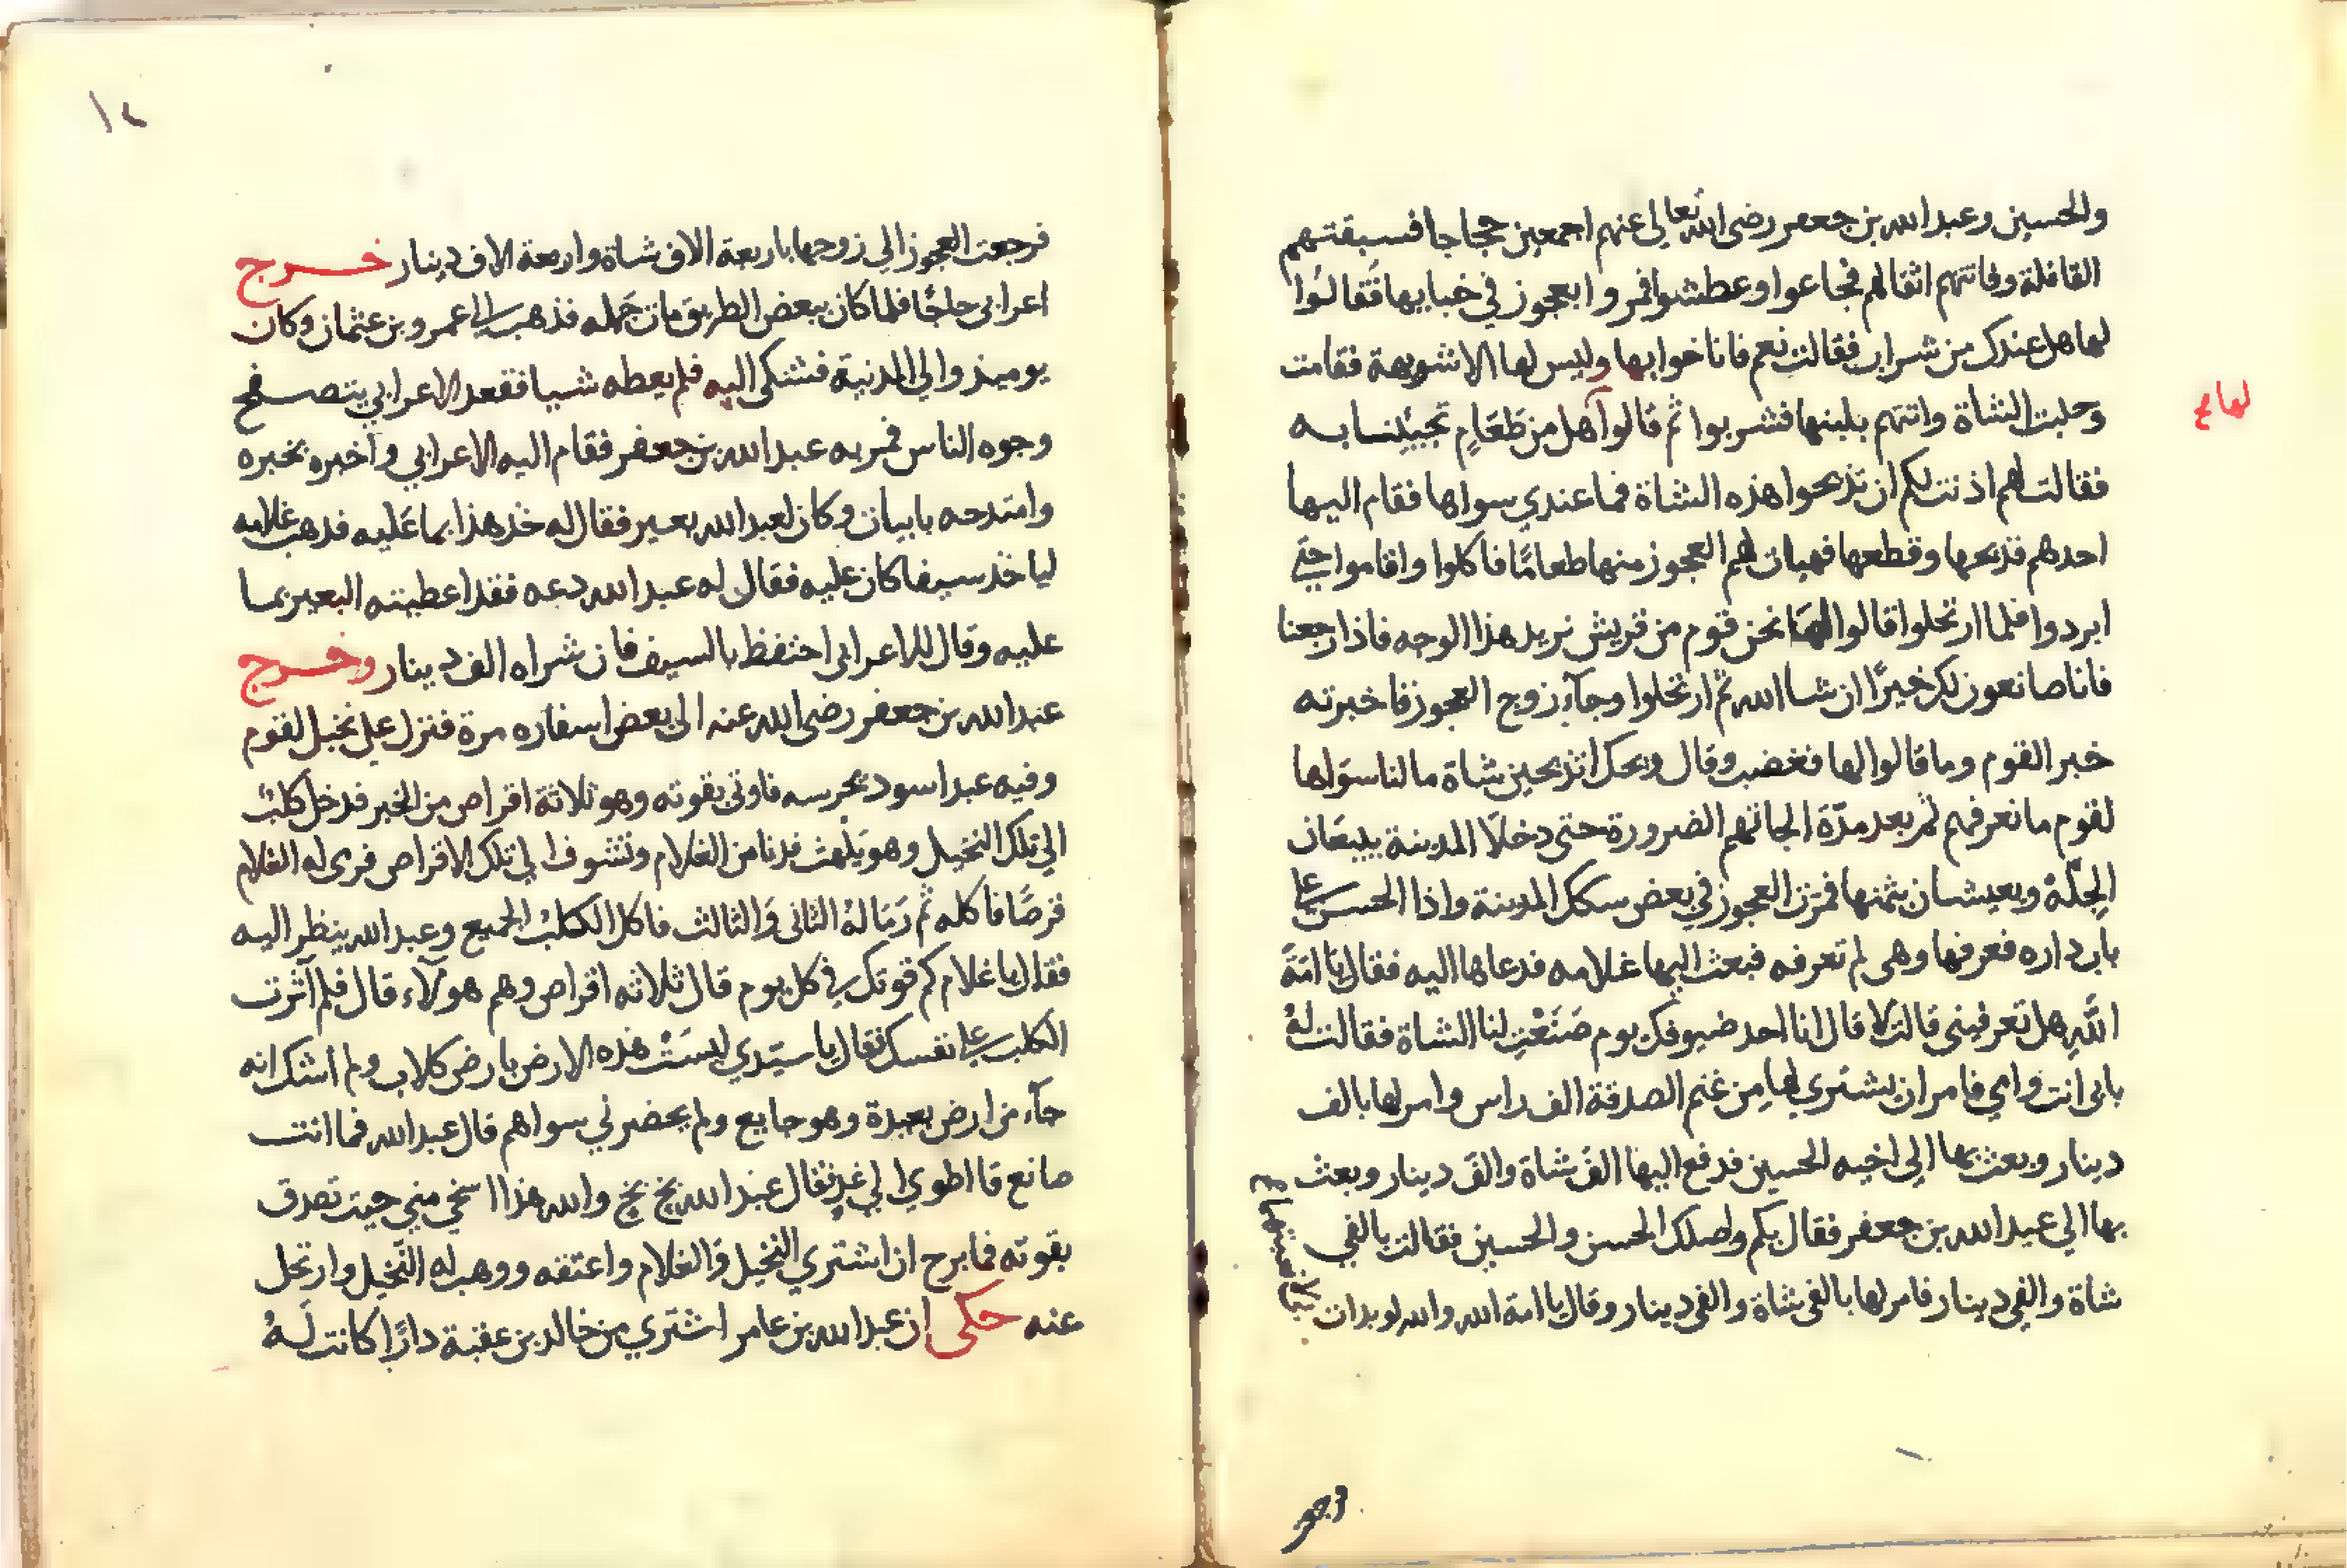 والحسين وعبد الله بن جعفر رضى الله تعالى عنهم اجمعين حجاجا فسبقتهم
القافلة وفاتتهم اثقالهم فجاعوا وعطشوا فمروا بعجوز في خبايها فقالوا
لها هل عندك من شراب فقالت نعم فاناخوا بها وليس لها الا شويهة فقامت
وحلبت الشاة واتتهم بلبنها فشربوا ثم قالوا هل من طعام تجيئينا به
فقالت لهم اذنت لكم ان تذبحوا هذه الشاة فما عندي سواها فقام اليها
احدهم فذبحها وقطعها فهيات لهم العجوز منها طعاما فاكلوا واقاموا حتى
ابردوا فلما ارتحلوا قالوا لها نحن قوم من قريش نريد هذا الوجه فاذا رجعنا
فانا صانعون لك خيرًا ان شا الله ثم ارتحلوا وجآء زوج العجوز فاخبرته
خبر القوم وما قالوا لها فغضب وقال ويحك اتذبحين شاة ما لنا سواها
لقوم ما نعرفهم ثم بعد مدّة الجاتهم الضرورة حتى دخلا المدينة يبيعان
الجلّة ويعيشان بثمنها فمرت العجوز في بعض سكك المدينة واذا الحسن على
باب داره فعرفها وهى لم تعرفه فبعث اليها غلامه فدعاها اليه فقال يا امَة
الله هل تعرفينى قالت لا قال انا احد ضيوفك يوم صَنَعْتِ لنا الشاة فقالت لهُ
بابى انت وامي فامر ان يشترى لها من غنم الصدقة الف راس وامر لها بالف
دينار وبعث بها الى اخيه الحسين فدفع اليها الف شاة والف دينار وبعث
بها الى عبد الله بن جعفر فقال بكم وصلك الحسن والحسين فقالت بالفي
شاة والفي دينار فامر لها بالفى شاة والفى دينار وقال يا امة الله والله لو بدات
بى لاتعبتهما
لها
فرجعت
١٢
فرجعت العجوز الى زوجها باربعة الاف شاة واربعة الاف دينار خرج
اعرابى حاجًا فلما كان ببعض الطريق مات جمله فذهب الى عمرو بن عثمان وكان
يوميذ والى المدينة فشكى اليه فلم يعطه شيا فقعد الاعرابي يتصفح
وجوه الناس فمر به عبد الله بن جعفر فقام اليه الاعرابي واخبره بخبره
وامتدحه بابيات وكان لعبد الله بعير فقال له خذ هذا بما عليه فذهب غلامه
لياخذ سيفا كان عليه فقال له عبد الله دعه فقد اعطيته البعير بما
عليه وقال للاعرابى احتفظ بالسيف فان شراه الف دينار وخرج
عبد الله بن جعفر رضى الله عنه الى بعض اسفاره مرة فنزل على نخيل لقوم
وفيه عبد اسود يحرسه فاوتى بقوته وهو ثلاثة اقراص من الخبز فدخل كلبٌ
الى تلك النخيل وهو يلهث فدنا من الغلام وتشوف الى تلك الاقراص فرمى له الغلام
قرصًا فاكله ثم رَمَا لهُ الثانى وَالثالث فاكل الكلبُ الجميع وعبد الله ينظر اليه
فقال يا غلام كم قوتك في كل يوم قال ثلاثه اقراص وهم هولآء قال فلم آثرت
الكلب على نفسك فقال يا سيّدي ليسَتْ هذه الارض بارض كلاب ولم اشك انه
جآء من ارض بعيدة وهو جايع ولم يحضرني سواهم قال عبد الله فما انت
صانع قا اطوي الى غد فقال عبد الله بخ بخ والله هذا اسخى مني حيث تصدق
بقوته فما برح ان اشترى النخيل وَالغلام واعتقه ووهب له النخيل وارتحل
عنه حكى ان عبد الله بن عامر اشترى من خالد بن عقبة دارًا كانت لَهُ